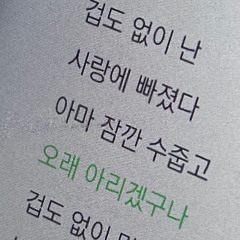 겁도 없이 난
사랑에 빠졌다
아마 잠깐 수줍고
오래 아리겠구나
겁도 없이